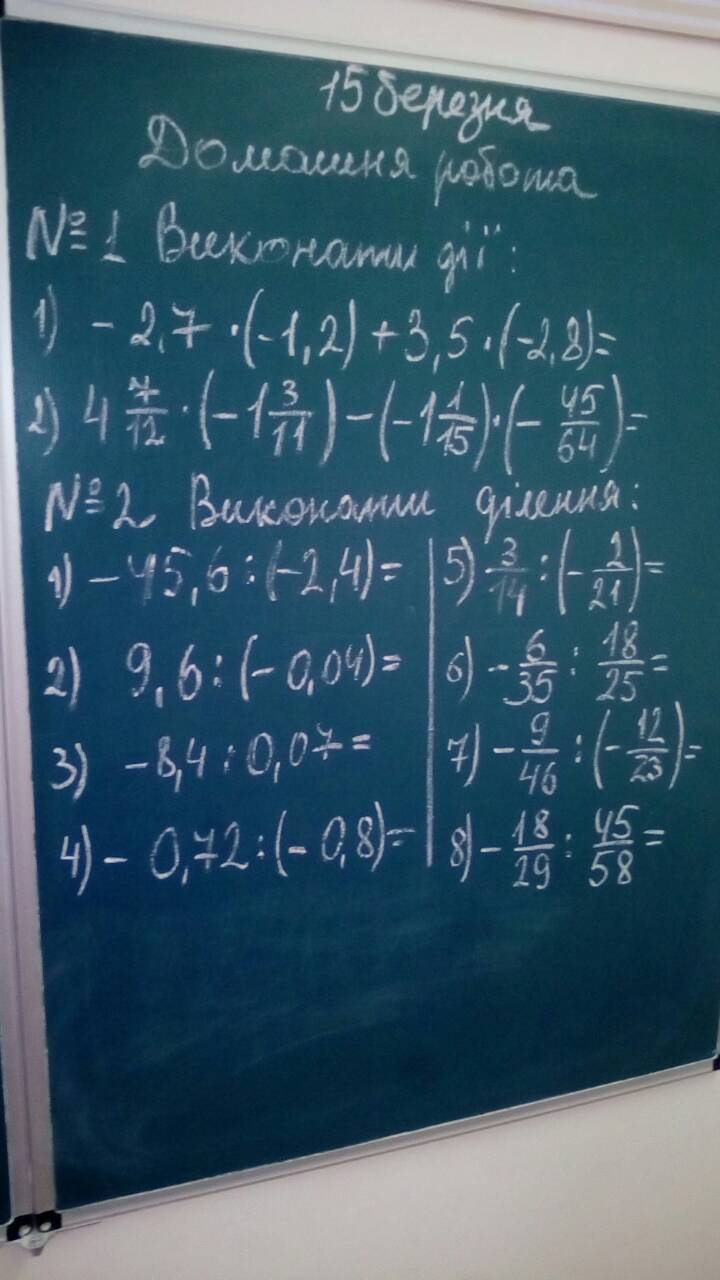 15 березня
Домашня робота
№1 Виконати дії:
1) -2,7·(-1,2)+3,5·(-2,8)=
2) 4 7/12·(-1 3/11)-(-1 1/15)·(-45/64)=
№2 Виконати ділення:
1) -45,6:(-2,4)=
2) 9,6:(-0,04)=
3) -8,4:0,07=
4) -0,72:(-0,8)=
5) 3/14:(-2/21)=
6) -6/35:18/25=
7) -9/46:(-12/23)=
8) -18/29:45/58=